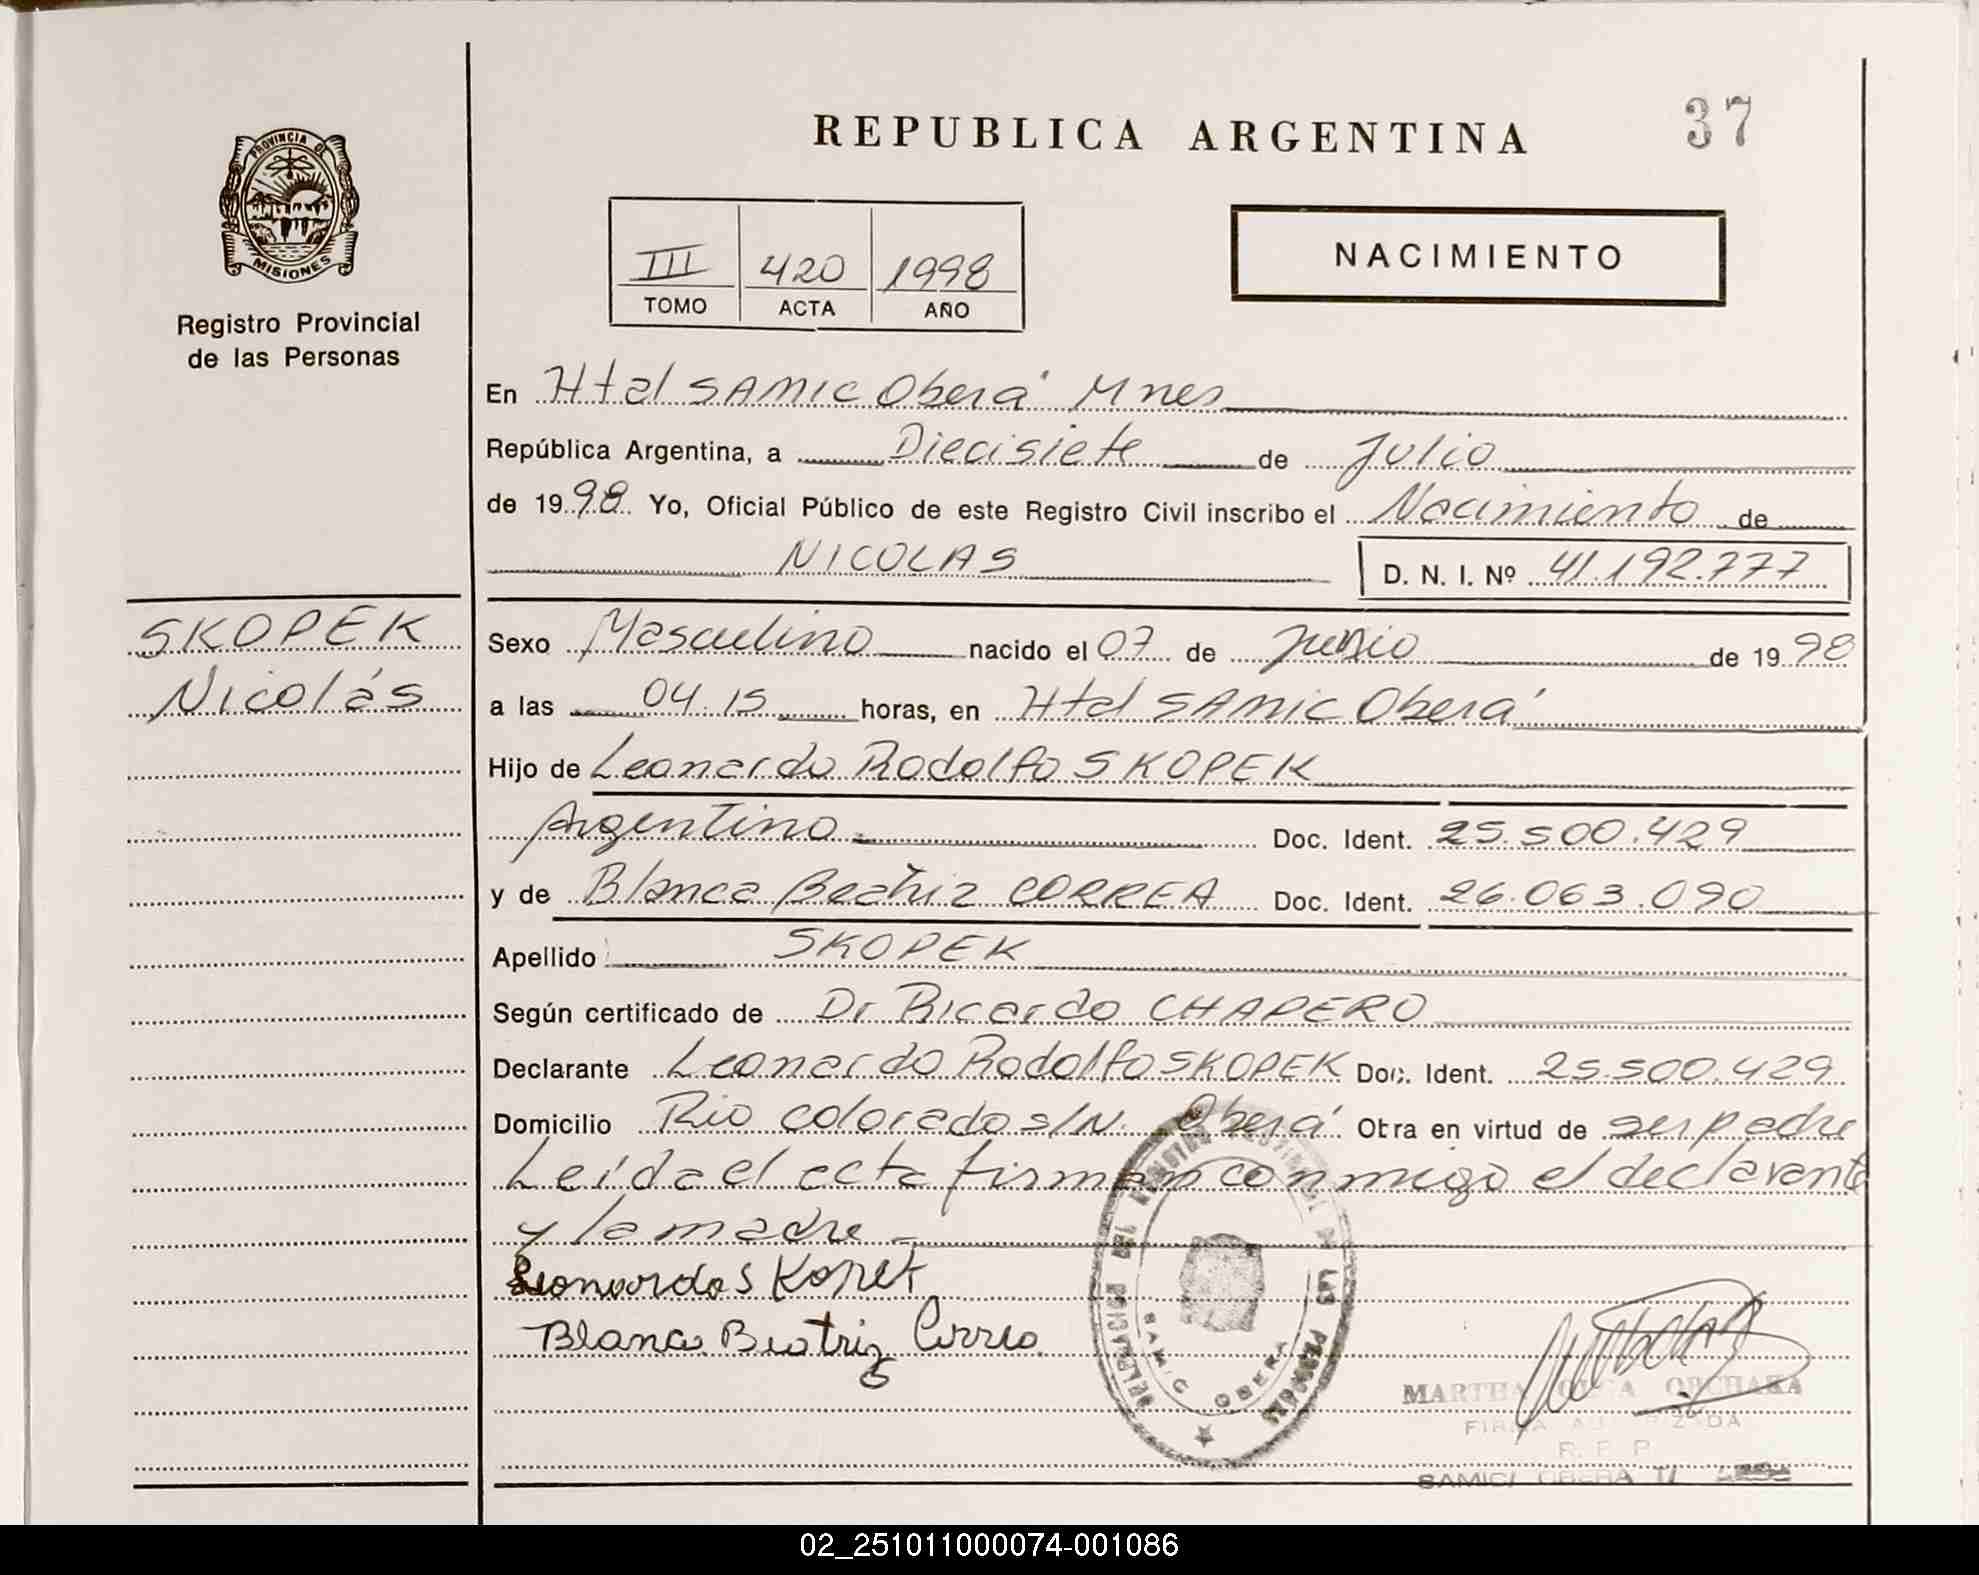 REPUBLICA ARGENTINA
37
PROVINCIA DE
MISIONES
Registro Provincial
de las Personas
III 420 1998
TOMO ACTA AÑO
NACIMIENTO
En Htal SAMIC Oberá Mnes
República Argentina, a Diecisiete de Julio
de 1998 Yo, Oficial Público de este Registro Civil inscribo el Nacimiento de
NICOLAS
D. N. I. Nº 41.192.777
SKOPEK
Nicolás
Sexo Masculino nacido el 07 de Junio de 1998
a las 04.15 horas, en Htal SAMIC Oberá
Hijo de Leonardo Rodolfo SKOPEK
Argentino Doc. Ident. 25.500.429
y de Blanca Beatriz CORREA Doc. Ident. 26.063.090
Apellido SKOPEK
Según certificado de Dr Ricardo CHAPERO
Declarante Leonardo Rodolfo SKOPEK Doc. Ident. 25.500.429
Domicilio Rio Colorado s/N. Oberá Obra en virtud de ser padre
Leída el acta firman conmigo el declarante
y la madre
Leonardo Skopek
Blanca Beatriz Correa
SAMIC OBERA
MARTHA OLGA
FIRMA AUTORIZADA
R. P. P.
SAMIC OBERA
02_251011000074-001086